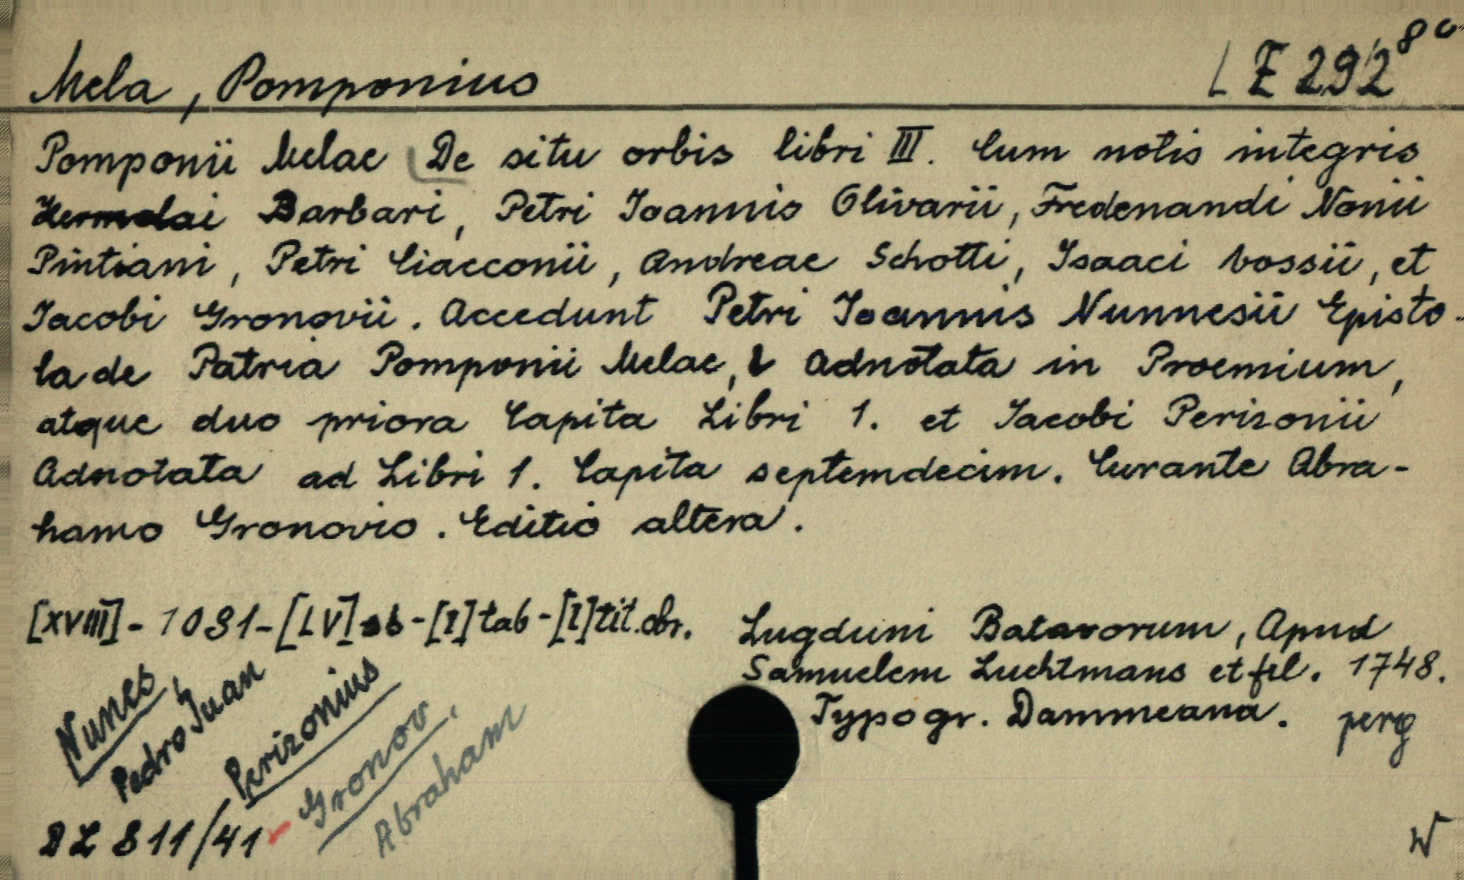 Mela, Pomponius
LE 292 8°
Pomponii Melae De situ orbis libri III. Cum notis integris
Hermolai Barbari, Petri Ioannis Olivarii, Fredenandi Nonii
Pintiani, Petri Ciacconii, Andreae Schotti, Isaaci Vossii, et
Iacobi Gronovii. Accedunt Petri Ioannis Nunnesii Episto-
la de Patria Pomponii Melae, & Adnotata in Proemium,
atque duo priora Capita Libri 1. et Iacobi Perizonii
Adnotata ad Libri 1. Capita septemdecim. Curante Abra-
hamo Gronovio. Editio altera.
[XVIII]-1091-[LV] sb-[I]tab-[I]tit.obr.
Lugduni Batavorum, Apud
Samuelem Luchtmans et fil. 1748.
Typogr. Dammeana.
perg
Nunes,
Pedro Juan
Perizonius
Gronov,
Abraham
DL 811/41
W